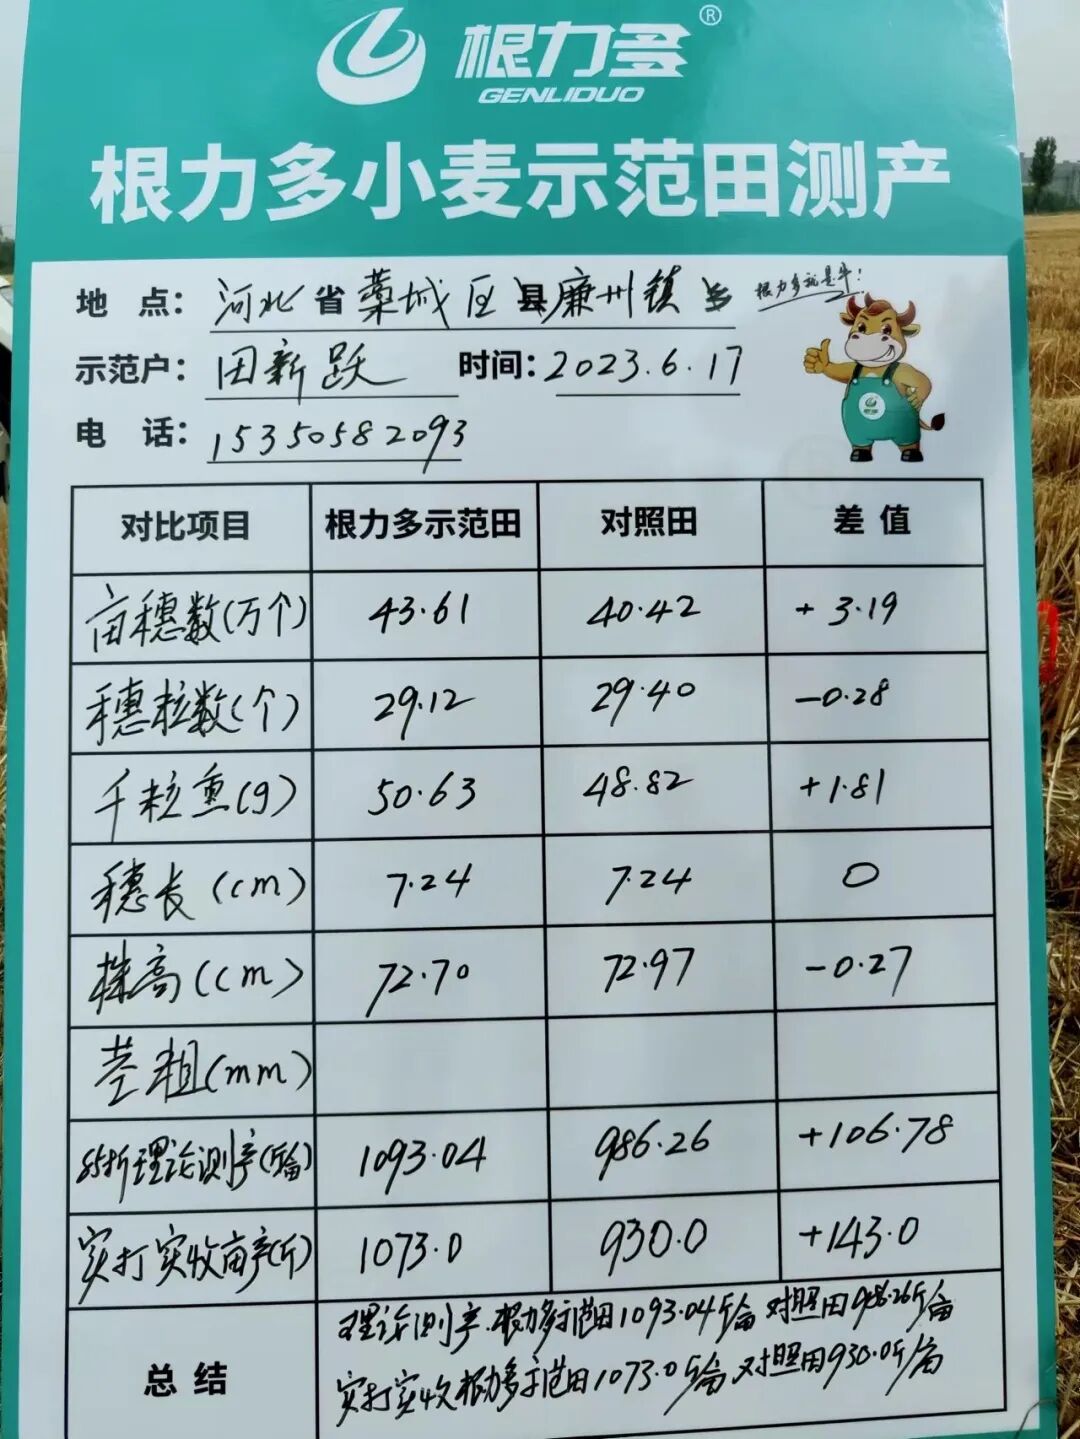 根力多®
GENLIDUO
根力多小麦示范田测产
地 点: 河北省藁城区县廉州镇乡 根力多就是牛!
示范户: 田新跃 时间: 2023.6.17
电 话: 15350582093
对比项目 根力多示范田 对照田 差 值
亩穗数(万个) 43.61 40.42 +3.19
穗粒数(个) 29.12 29.40 -0.28
千粒重(g) 50.63 48.82 +1.81
穗长(cm) 7.24 7.24 0
株高(cm) 72.70 72.97 -0.27
茎粗(mm)
85折理论测产(斤/亩) 1093.04 986.26 +106.78
实打实收亩产(斤) 1073.0 930.0 +143.0
总 结 理论测产.根力多示范田1093.04斤/亩 对照田986.26斤/亩
实打实收根力多示范田1073.0斤/亩 对照田930.0斤/亩